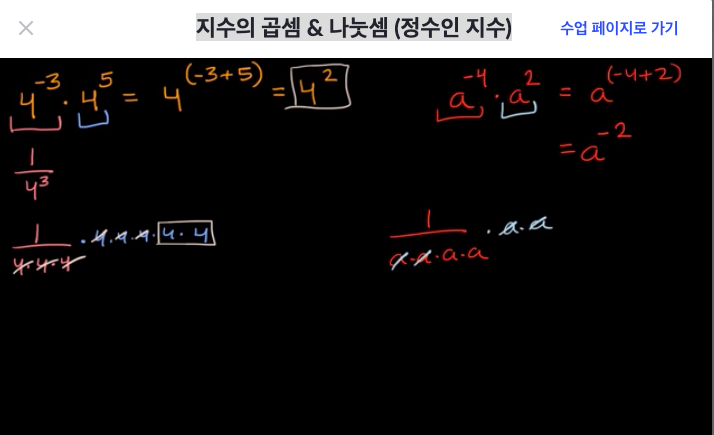 지수의 곱셈 & 나눗셈 (정수인 지수)
수업 페이지로 가기
4⁻³ · 4⁵ = 4⁽⁻³⁺⁵⁾ = 4²
1/4³
1/(4·4·4) · 4·4·4·4·4
a⁻⁴ · a² = a⁽⁻⁴⁺²⁾
= a⁻²
1/(a·a·a·a) · a·a